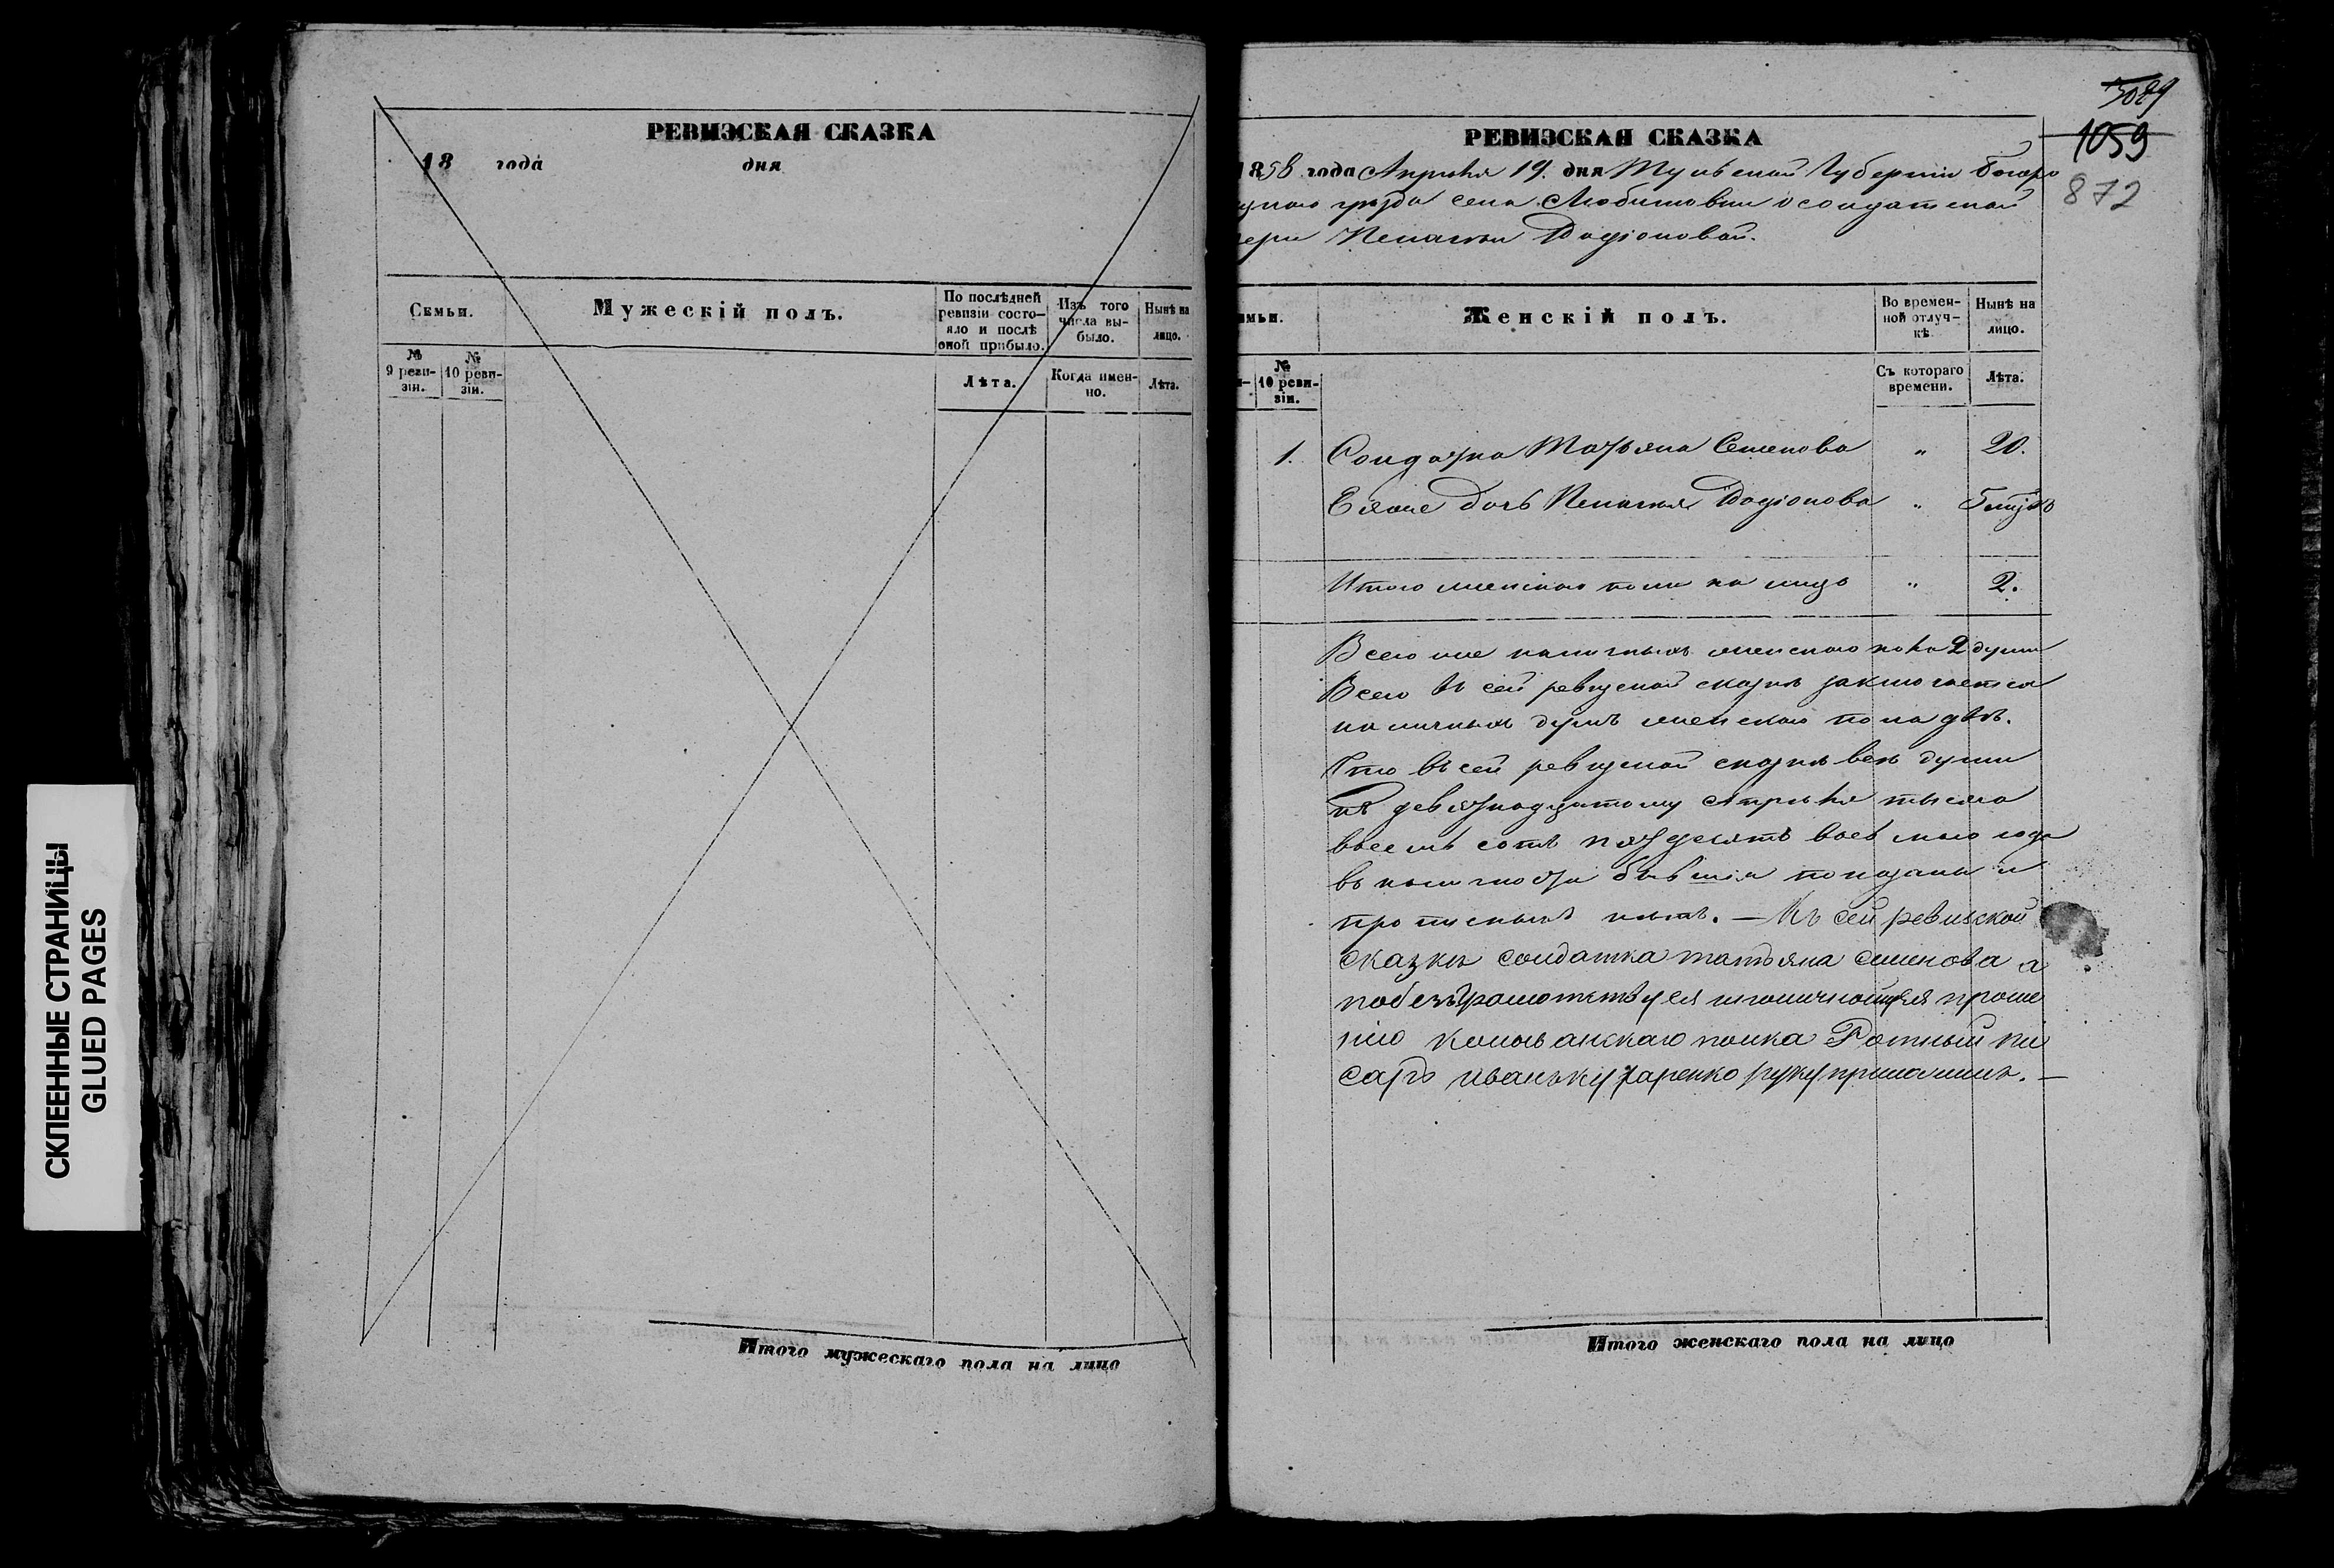 СКЛЕЕННЫЕ СТРАНИЦЫ
GLUED PAGES
РЕВИЗСКАЯ СКАЗКА
18 года дня
Семьи.
Мужескій полъ.
По послѣдней ревизіи состо-
яло и послѣ
оной прибыло.
Изъ того
числа вы-
было.
Нынѣ на
лицо.
№
9 реви-
зіи.
№
10 реви-
зіи.
Лѣта.
Когда имен-
но.
Лѣта.
Итого мужескаго пола на лицо
1059
872
РЕВИЗСКАЯ СКАЗКА
1858 года Апрѣля 19. дня Тульской Губерніи Богоро
уѣзда села Любимовки о солдатской
Пелагеи Родіоновой.
Женскій полъ.
Во времен-
ной отлуч-
кѣ
Нынѣ на
лицо.
№
10 реви-
зіи.
Съ котораго
времени.
Лѣта.
1. Солдатка Татьяна Семенова " 20.
Ея дочь Пелагея Родіонова "
Итого женскаго пола на лицо " 2.
Всего же наличныхъ женскаго пола 2 души
Всего въ сей ревизской сказкѣ заключается
наличныхъ душъ женскаго пола двѣ.
Что въ сей ревизской сказкѣ всѣ души
къ девятнадцатому Апрѣля тысяча
восемь сотъ пятьдесятъ восьмаго года
въ наличности бывшія показаны и
прописныхъ нѣтъ. — Къ сей ревиской
сказки солдатка татьяна семенова а
по безграмотству ея и по личной ея проше
нію Колыванскаго полка Ротный пи
сарь иванъ кухаренко руку приложилъ. —
Итого женскаго пола на лицо